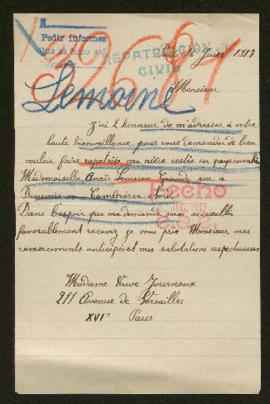 Pedir informes
REPATRIACION
CIVIL
Juin 1917
Lemoine
Monsieur
J'ai l'honneur de m'adresser à votre
haute bienveillance pour vous demander de bien
vouloir faire rapatriée ma nièce restée en pays envahi
Mademoiselle Lemoine Grande rue à
en Cambrésis Nord
Hecho
Dans l'espoir que ma demande sera accueillie
favorablement recevez je vous prie Monsieur mes
remerciements anticipés et mes salutations respectueuses
Madame Veuve Journaux
211 Avenue de Versailles
XVIe Paris